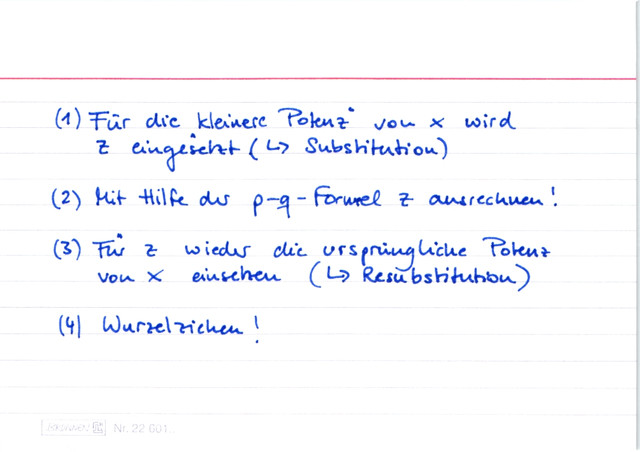 (1) Für die kleinere Potenz von x wird
z eingesetzt (↳ Substitution)
(2) Mit Hilfe der p-q-Formel z ausrechnen!
(3) Für z wieder die ursprüngliche Potenz
von x einsetzen (↳ Resubstitution)
(4) Wurzelziehen!
BRUNNEN Nr. 22 601